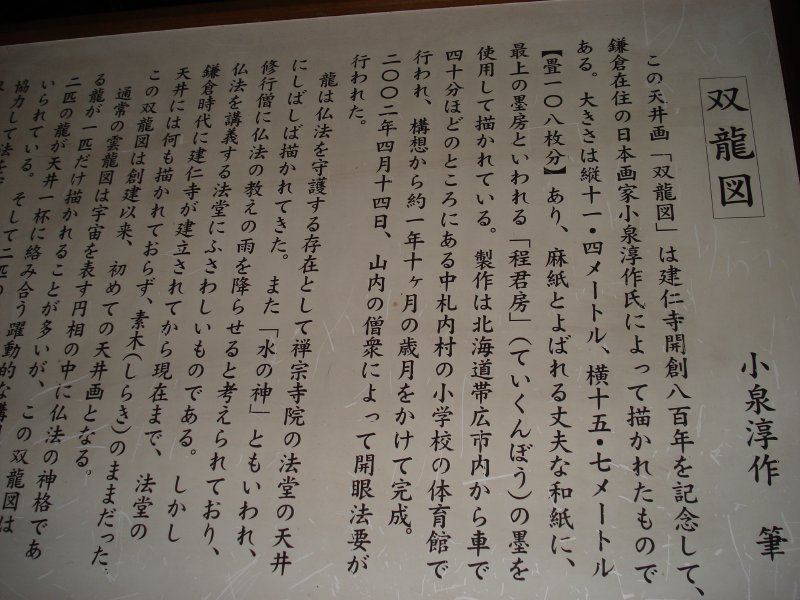 双龍図
小泉淳作 筆
この天井画「双龍図」は建仁寺開創八百年を記念して、
鎌倉在住の日本画家小泉淳作氏によって描かれたもので
ある。大きさは縦十一・四メートル、横十五・七メートル
【畳一〇八枚分】あり、麻紙とよばれる丈夫な和紙に、
最上の墨房といわれる「程君房」(ていくんぼう)の墨を
使用して描かれている。製作は北海道帯広市内から車で
四十分ほどのところにある中札内村の小学校の体育館で
行われ、構想から約一年十ヶ月の歳月をかけて完成。
二〇〇二年四月十四日、山内の僧衆によって開眼法要が
行われた。
龍は仏法を守護する存在として禅宗寺院の法堂の天井
にしばしば描かれてきた。また「水の神」ともいわれ、
修行僧に仏法の教えの雨を降らせると考えられており、
仏法を講義する法堂にふさわしいものである。しかし
鎌倉時代に建仁寺が建立されてから現在まで、法堂の
天井には何も描かれておらず、素木(しらき)のままだった。
この双龍図は創建以来、初めての天井画となる。
通常の雲龍図は宇宙を表す円相の中に仏法の神格であ
る龍が一匹だけ描かれることが多いが、この双龍図は
二匹の龍が天井一杯に絡み合う躍動的な構
いられている。そして二匹の
協力して法を